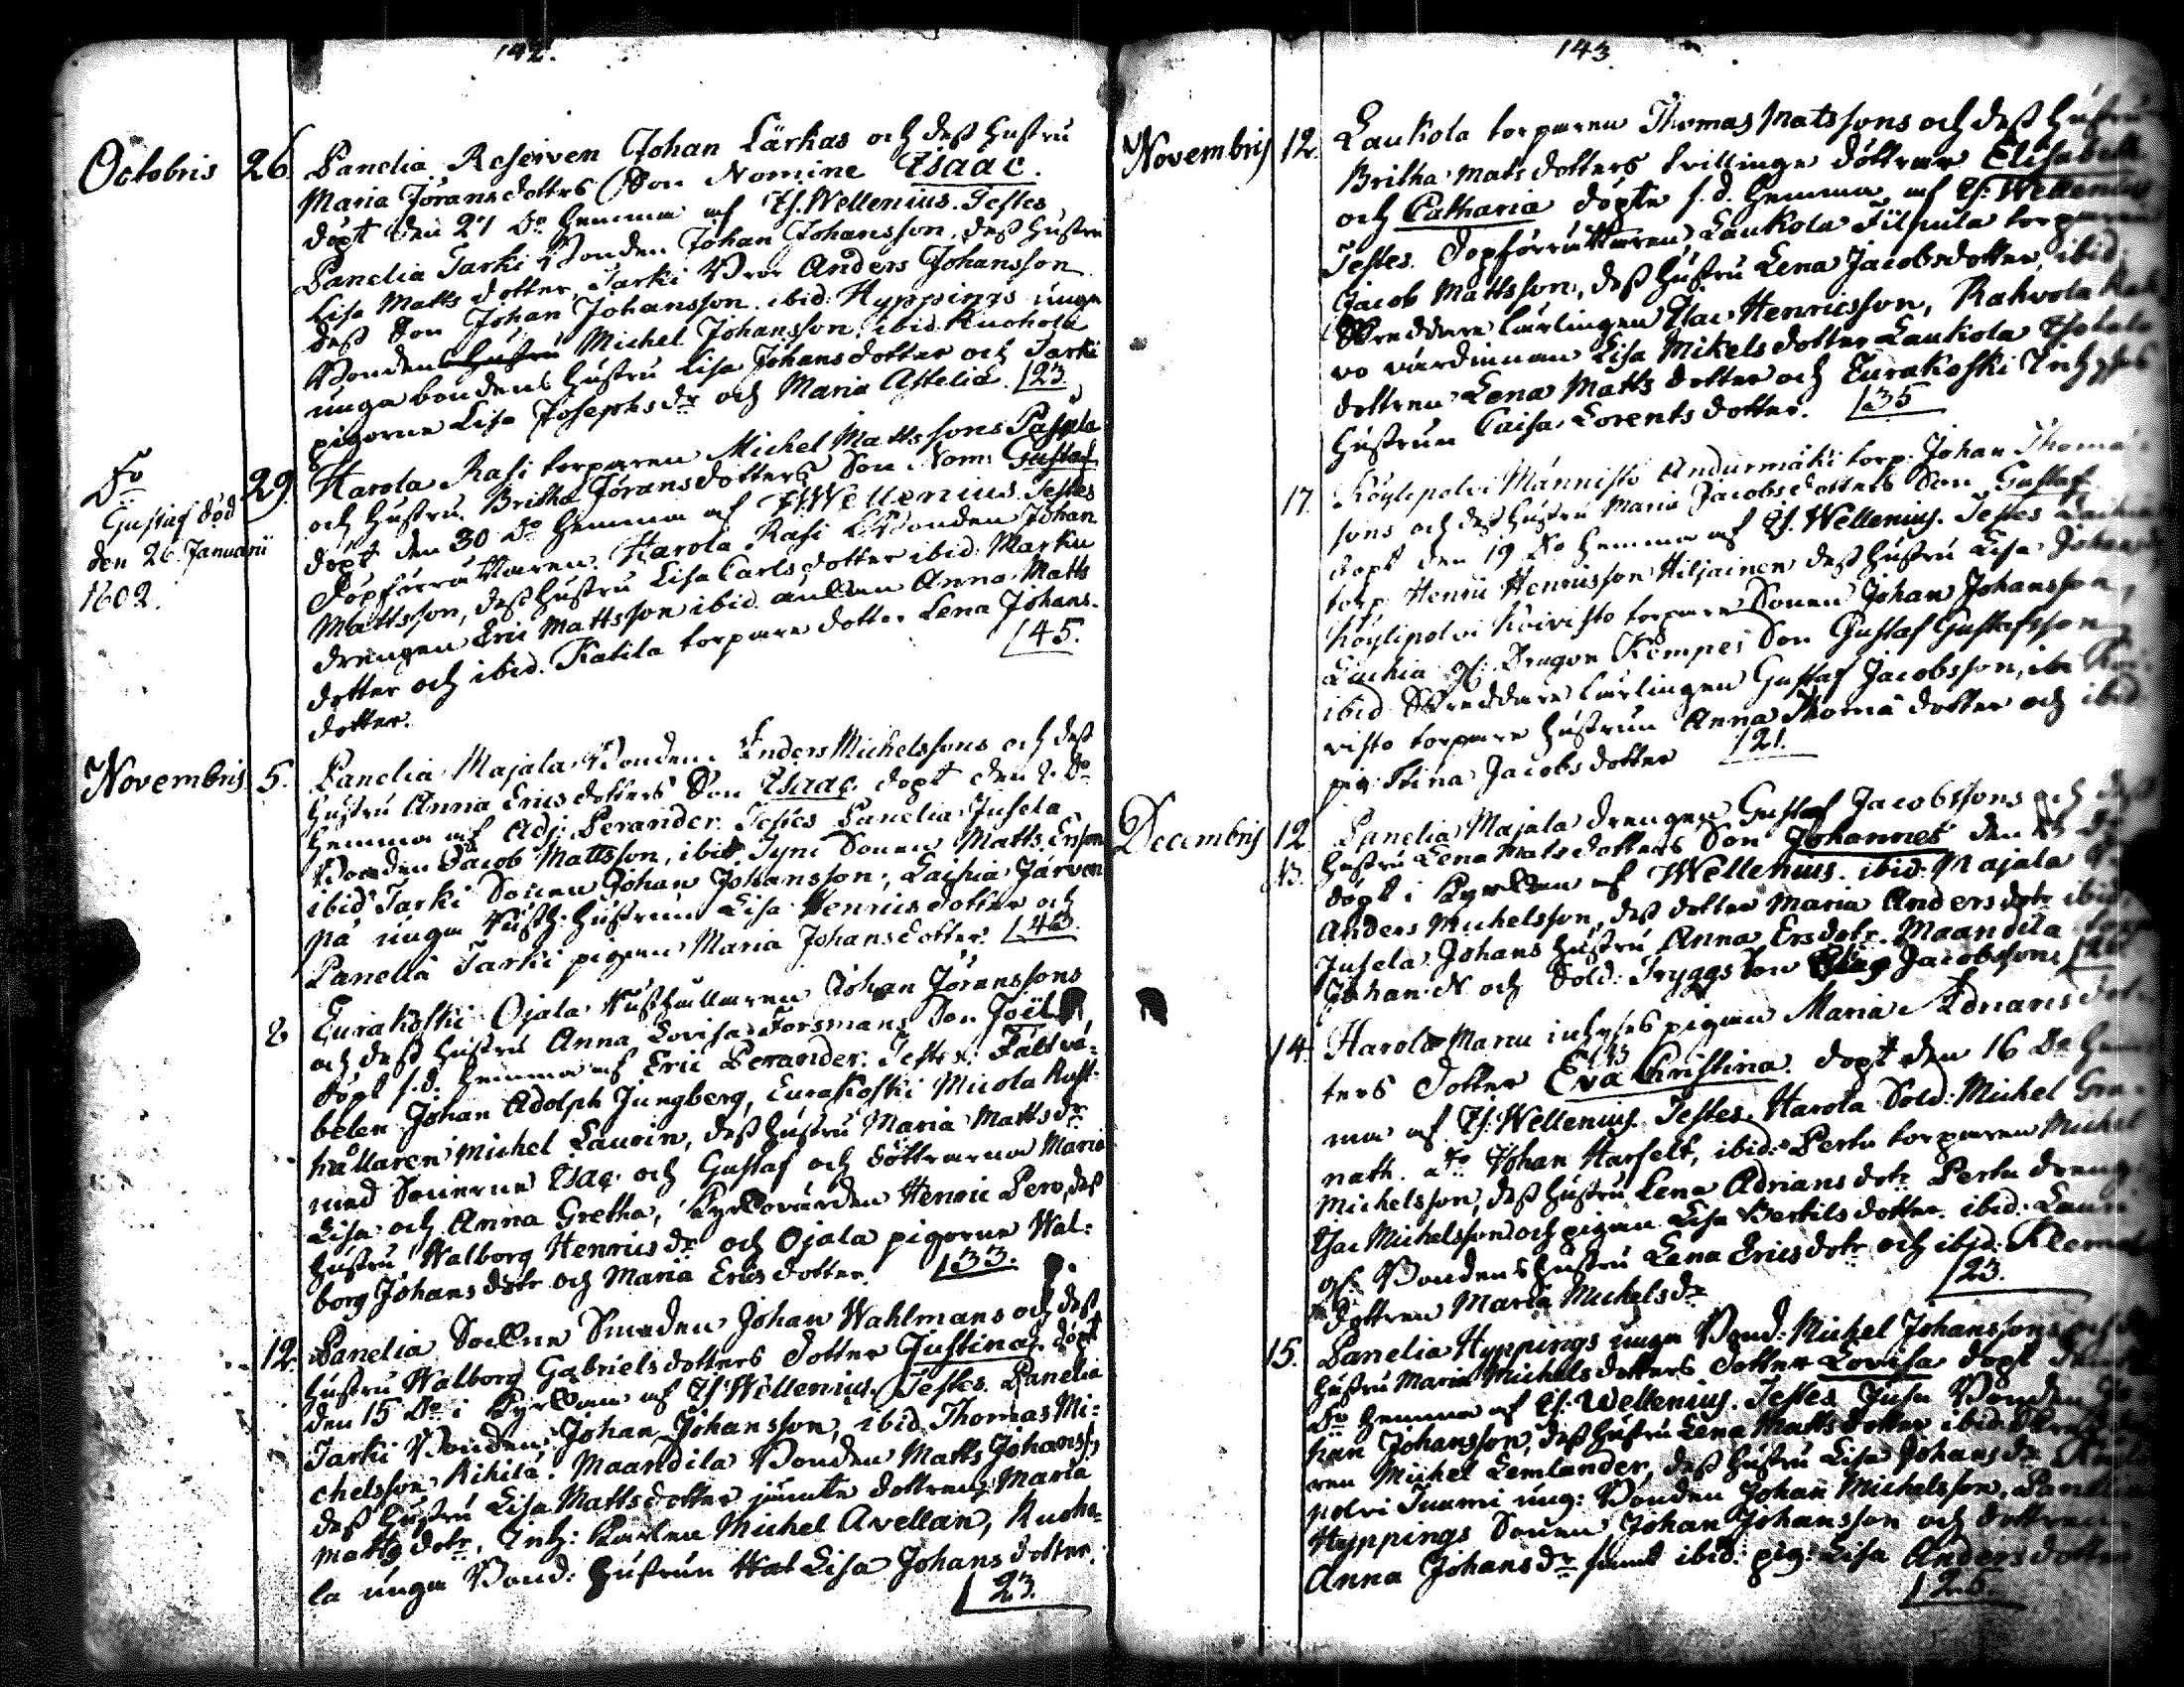 142.
Octobris 26. Panelia Reserven Johan Lärkas och dess hustru
Maria Jörans dotters Son Nomine Isaac.
döpt den 27 do hemma af Js. Wellenius. Testes
Panelia Tarki Bonden Johan Johansson, dess hustru
Lisa Matts dotter, Tarki Bror Anders Johansson
dess Son Johan Johansson. ibid: Hyppings unge
Bonden hustru Michel Johansson, ibid. Kuohola
unga bondens hustru Lisa Johans dotter och Tarki
pigorne Lisa Josephs dr och Maria Astelia. 23
Do 29. Harola Rasi torparen Michel Mattssons Passela
Gustaf död den 26. Januarii 1802.
och hustru Britha Jörans dotters Son Nom: Gustaf
döpt den 30 do hemma af Js. Wellenius Testes
Döpförrättaren. Harola Rasi Bonden Johan
Mattsson, dess hustru Lisa Carls dotter ibid: Marku
drengen Eric Mattsson ibid. änkan Anna Matts
dotter och ibid. Katila torpare dotter Lena Johans-
dotter. 45.
Novembris 5. Panelia Majala Bonden Anders Michelssons och dess
hustru Anna Erics dotters Son Isaac. döpt den 8. do
hemma af Adj: Perander. Testes Panelia Jusela
Bonden Jacob Mattsson, ibid. Tyni Sonen Matts Ersson
ibid Tarki Sonen Johan Johansson, Laihia Järven
pä unga Rusth: hustrun Lisa Henrics dotter och
Panelia Tarki pigan Maria Johans dotter. 43
8 Eurakoski Ojala Rusthållaren Johan Jöranssons
och dess hustru Anna Lovisa Forsmans Son Joël
döpt s.d. hemma af Eric Perander. Testes: Fältvä-
belen Johan Adolph Jungberg, Eurakoski Micola Rust-
hållaren Michel Laurin, dess hustru Maria Matts dr
med Sönerne Isac och Gustaf och döttrarna Maria
Lisa och Anna Gretha, Kyrkovärden Henric Pero, dess
hustru Walborg Henrics dr och Ojala pigorne Wal-
borg Johans dotr och Maria Erics dotter. 33.
12. Panelia Sockne Smeden Johan Wahlmans och dess
hustru Walborg Gabriels dotters dotter Justina. döpt
den 15 do i Kyrkan af Js. Wellenius. Testes. Panelia
Tarki Bonden Johan Johansson, ibid Thomas Mi-
chelsson Kihila. Maandila Bonden Matts Johanss.
dess hustru Lisa Matts dotter jämte dottren Maria
Matts dotr, Inh: Karlen Michel Avellan, Kuoho-
la unga Bond: hustrun Lisa Johans dotter.
23.
143
Novembris 12. Laukola torparen Thomas Matssons och dess hustru
Britha Mats dotters tvillinge döttrar Elisabeth
och Catharia döpte s.d. hemma af Js: Wellenius
Testes. Döpförrättaren, Laukola Filpula torparen
Jacob Mattsson, dess hustru Lena Jacobs dotter, ibid.
Skreddare lärlingen Isac Henricsson, Rahvola
vo värdinnan Lisa Mikels dotter Laukola Isotalo
dottren Lena Matts dotter och Eurakoski Inhyses
hustrun Caisa Lorents dotter. 35
17. Köylipolvi Männistö Andurmäki torp. Johan Thomas-
sons och dess hustru Maria Jacobs dotters Son Gustaf
döpt den 19 do hemma af Js. Wellenius. Testes
torp: Henric Henricsson Hiljainen dess hustru Lisa Johans dr
Köylipolvi Koivisto torpare Sonen Johan Johansson,
Dragon Kempes Son Gustaf Gustafsson
ibid Skreddare lärlingen Gustaf Jacobsson, ibm Koi-
visto torpare hustrun Anna Thomæ dotter och ibid
pig: Stina Jacobs dotter 21.
Decembris 12 Panelia Majala drengen Gustaf Jacobssons och dess
hustru Lena Mats dotters Son Johannes den
13. döpt i Kyrkan af Wellenius. ibid: Majala
Anders Michelsson, dess dotter Maria Anders dotr ibid.
Jusela Johans hustru Anna Ers dotr. Maandila
Johan N och Sold: Tryggs Son Isac Jacobsson.
14. Harola Marcu inhyses pigan Maria Adrians dot-
ters dotter Eva Christina döpt den 16 do hem-
ma af Js. Wellenius. Testes. Harola Sold: Michel Gra-
nath. dto Johan Harfelt, ibid: Perttu torparen Michel
Michelsson, dess hustru Lena Adrians dotr Perttu dreng
Isac Michelsson och pigan Lisa Bertils dotter. ibid: Lauri
Bondens hustru Lena Erics dotr och ibid:
dottren Maria Michels dr 23.
15. Panelia Hyppings unge Bond: Michel Johanssons och
hustru Maria Michels dotters dotter Lovisa döpt
do hemma af Js: Wellenius. Testes Juse Bonden Jo-
han Johansson, dess hustru Lena Matts dotter ibid:
ren Michel Lemlander, dess hustru Lisa Johans dr
polvi Tuomi ung: Bonden Johan Michelsson, Panelia
Hyppings Sonen Johan Johansson och dottren
Anna Johans dr samt ibid: pig: Lisa Anders dotter
25.